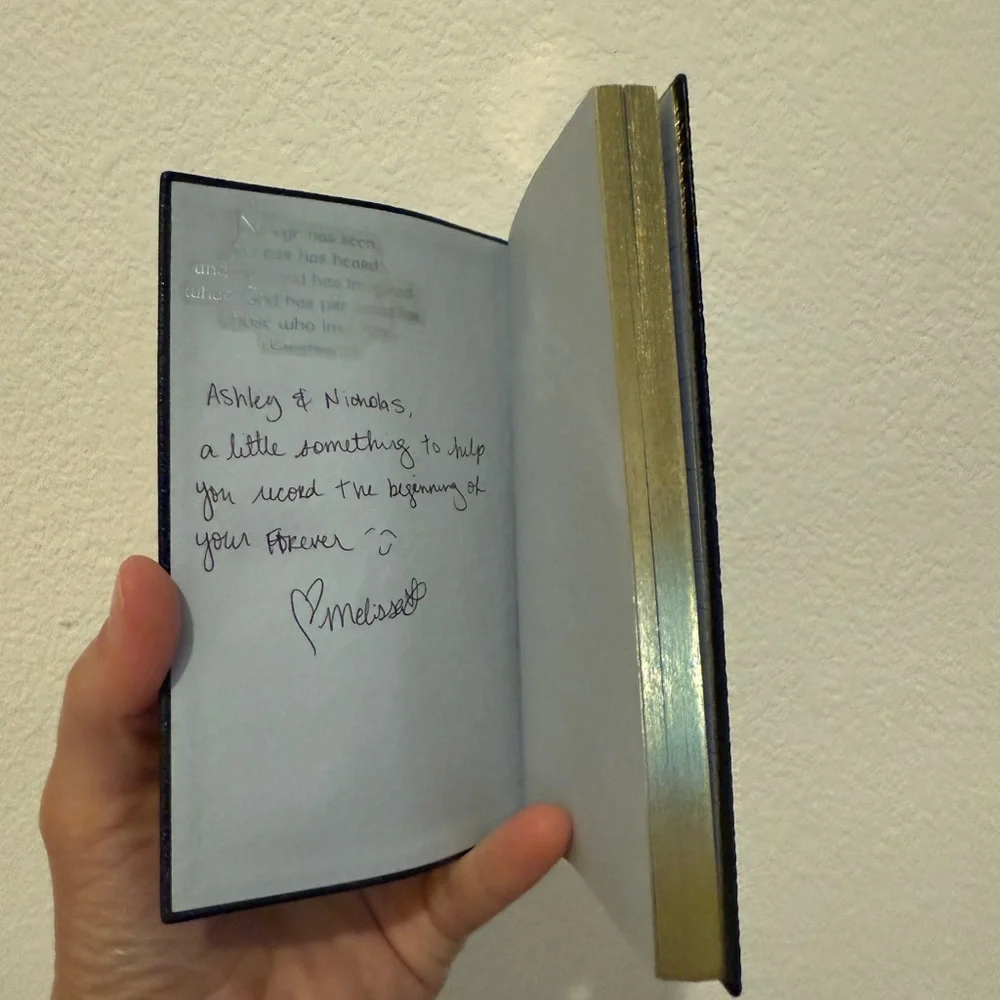 has seen
ear has heard
and has
what God has
those who
Ashley & Nicholas,
a little something to help
you record the beginning of
your Forever
Melissa